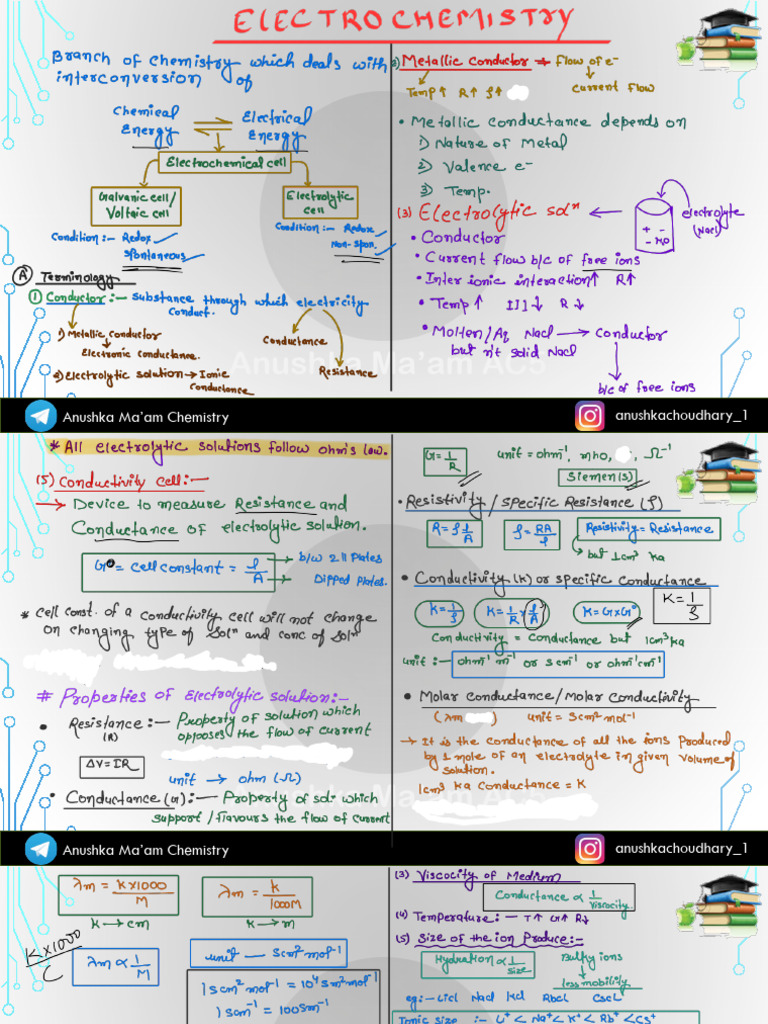 ELECTROCHEMISTRY
Branch of chemistry which deals with
interconversion of
Chemical Energy ⇌ Electrical Energy
Electrochemical cell
Galvanic cell/
Voltaic cell
Electrolytic
cell
Condition:- Redox
Spontaneous
Condition:- Redox
Non-Spon.
(A) Terminology
(1) Conductor:- substance through which electricity
conduct.
1) Metallic conductor
Electronic conductance.
2) Electrolytic solution → Ionic
Conductance
Conductance
Resistance
Anushka Ma'am ACS
2) Metallic Conductor → flow of e-
current flow
Temp↑ R↑ ρ↑
• Metallic conductance depends on
1) Nature of Metal
2) Valence e-
3) Temp.
(3) Electrolytic solⁿ ←
electrolyte
(NaCl)
+ -
- H2O
• Conductor
• Current flow b/c of free ions
• Inter ionic interaction↑ R↑
• Temp↑ III↓ R↓
• Molten/Aq NaCl → Conductor
but n't solid NaCl
b/c of free ions
Anushka Ma'am Chemistry
anushkachoudhary_1
* All electrolytic solutions follow ohm's law.
(5) Conductivity cell:-
→ Device to measure Resistance and
Conductance of electrolytic solution.
G* = cell constant = l/A
→ b/w 2 ll Plates
→ Dipped Plates.
* cell const. of a conductivity cell will not change
on changing type of solⁿ and conc of solⁿ
# Properties of electrolytic solution:-
• Resistance:- Property of solution which
(R) opposes the flow of current
ΔV=IR
unit → ohm (Ω)
• Conductance (G):- Property of solⁿ which
support/flavours the flow of current
Anushka Ma'am ACS
G=1/R
unit = ohm⁻¹, mho, Ω⁻¹
Siemen(s)
• Resistivity/specific Resistance (ρ)
R=ρl/A
ρ=RA/l
Resistivity=Resistance
but 1cm³ ka
• Conductivity (K) or specific conductance
K=1/ρ
K=1/R×l/A
K=G×G*
K=1/ρ
conductivity = conductance but 1cm³ ka
unit:- ohm⁻¹ m⁻¹ or s cm⁻¹ or ohm⁻¹cm⁻¹
• Molar conductance/Molar conductivity
(λm ) unit = Scm² mol⁻¹
→ It is the conductance of all the ions produced
by 1 mole of an electrolyte in given volume of
solution.
1cm³ ka conductance = K
Anushka Ma'am Chemistry
anushkachoudhary_1
λm=K×1000/M
K→cm
λm=K/1000M
K→m
K×1000/C
λm∝1/M
unit — Scm² mol⁻¹
1scm² mol⁻¹ = 10⁴ sm² mol⁻¹
1scm⁻¹ = 100sm⁻¹
(3) Viscocity of Medium
Conductance ∝ 1/viscocity
(4) Temperature:- T↑ G↑ R↓
(5) Size of the ion Produce:-
Hydration ∝ 1/size
Bulky ions
less mobility
eg:- LiCl NaCl KCl RbCl CsCl
Ionic size :- Li⁺<Na⁺<K⁺<Rb⁺<Cs⁺